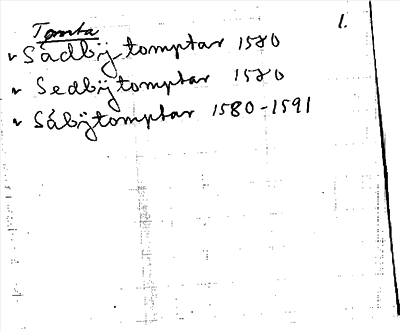 Tomta 1.
v Sádbÿtomptar 1580
v Sedbÿtomptar 1580
v Sábÿtomptar 1580-1591